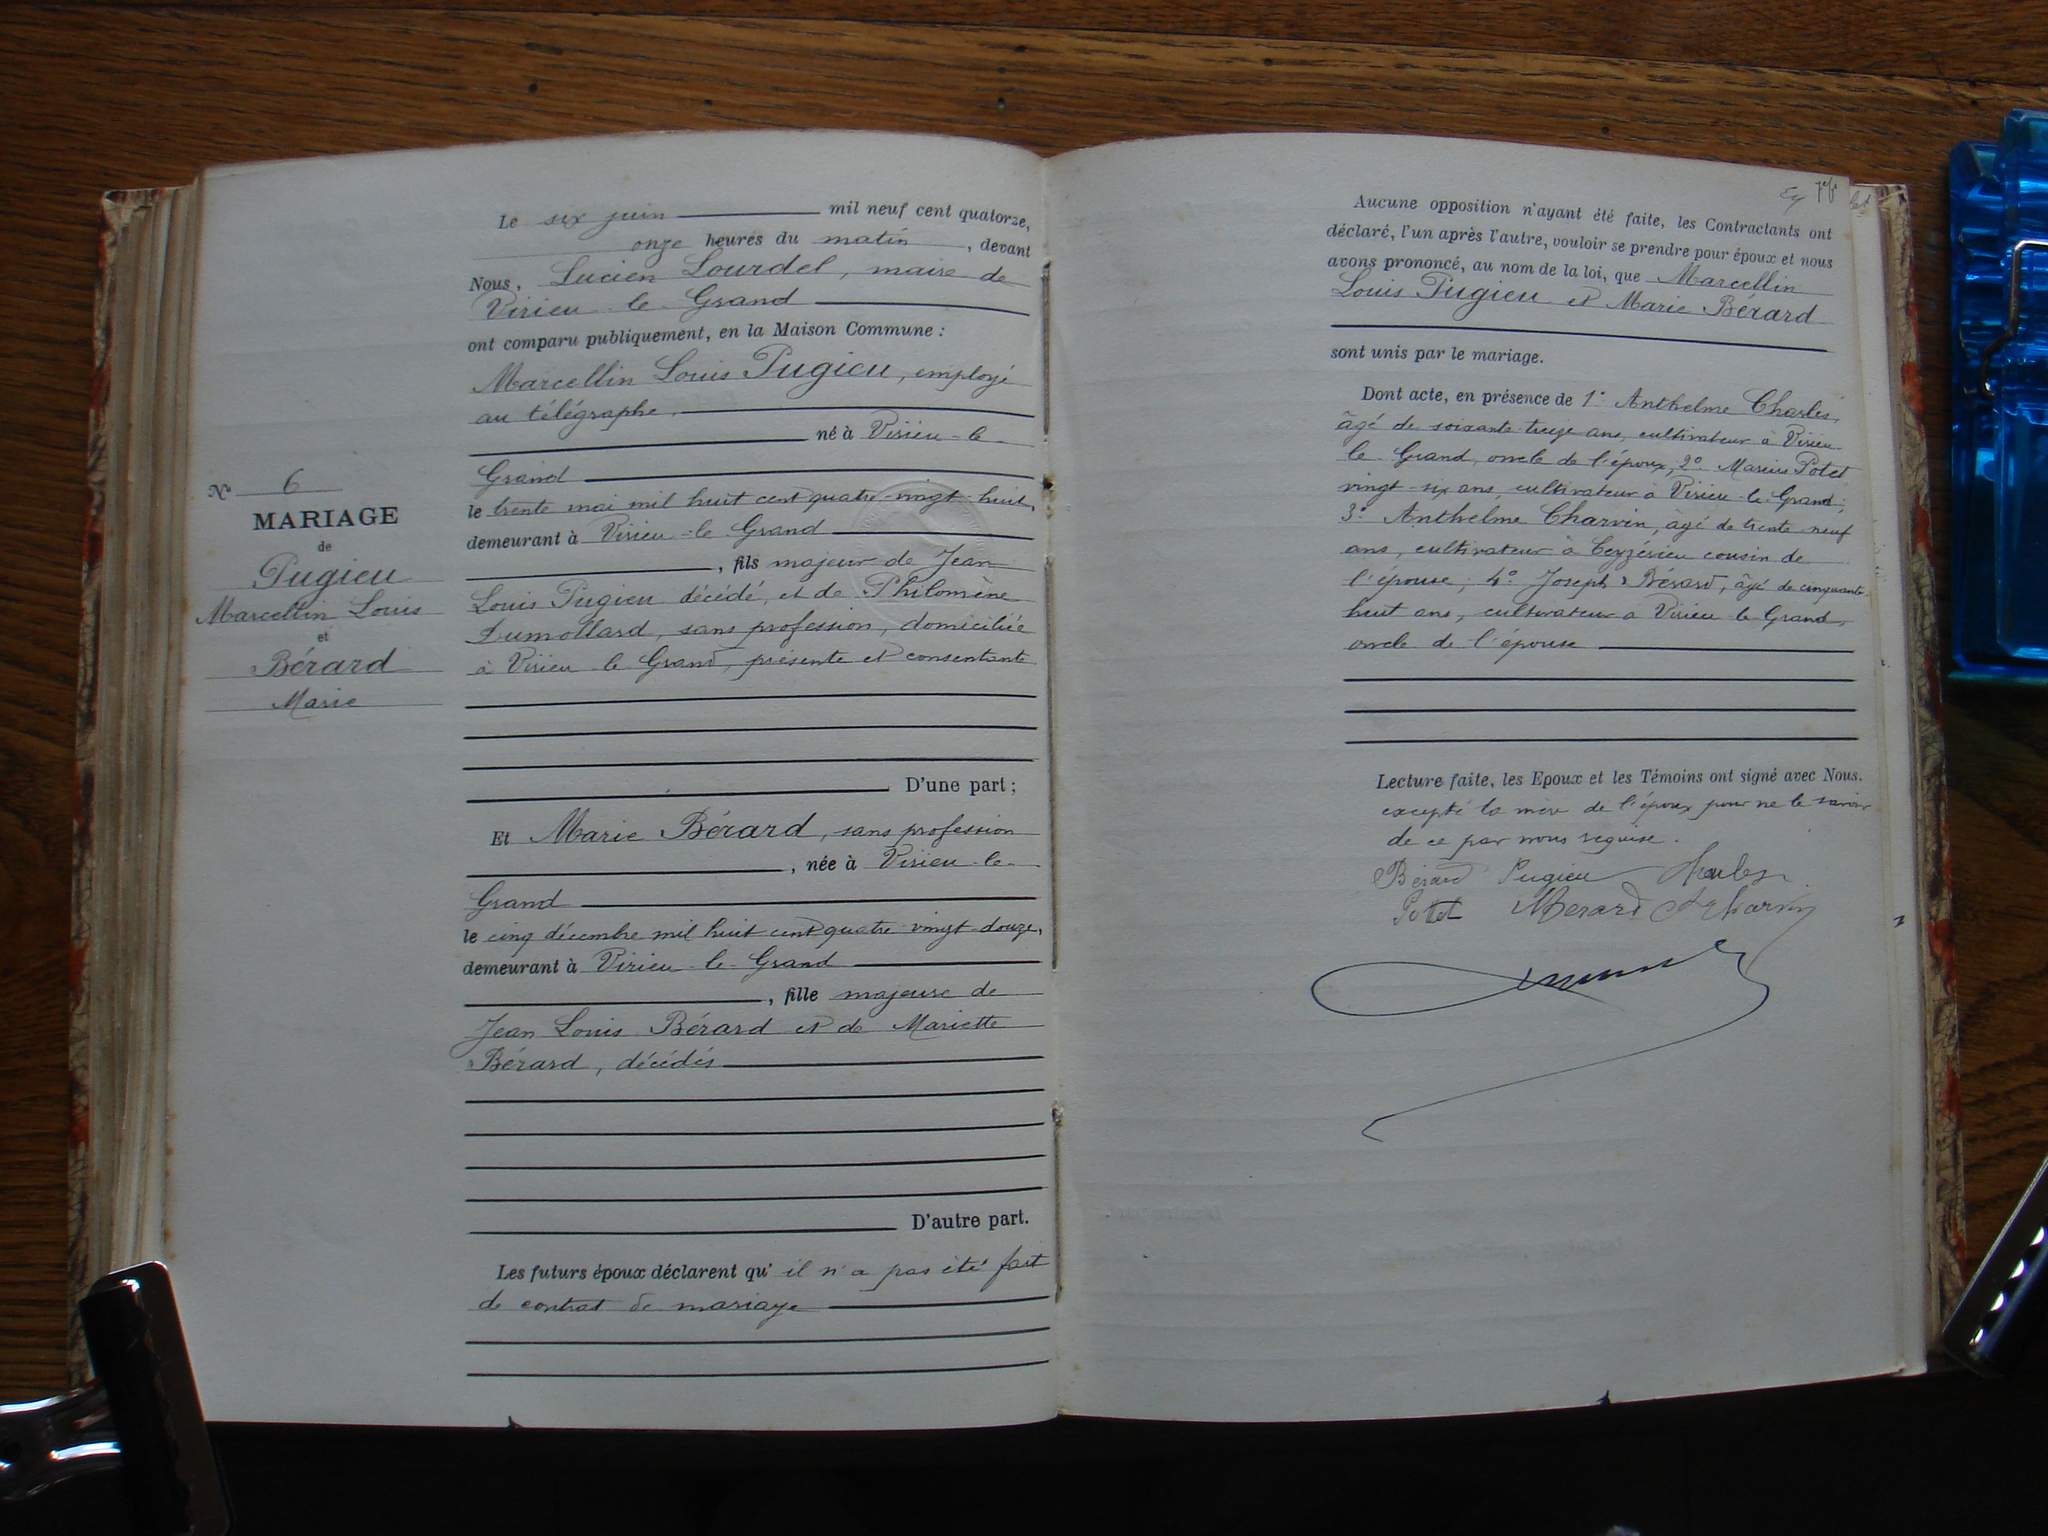 N° 6
MARIAGE
de
Pugieu
Marcellin Louis
et
Bérard
Marie
Le six juin mil neuf cent quatorze,
onze heures du matin, devant
Nous, Lucien Lourdel, maire de
Virieu-le-Grand
ont comparu publiquement, en la Maison Commune :
Marcellin Louis Pugieu, employé
au télégraphe.
né à Virieu-le-
Grand
le trente mai mil huit cent quatre-vingt-huit,
demeurant à Virieu-le-Grand
, fils majeur de Jean
Louis Pugieu décédé, et de Philomène
Dumollard, sans profession, domiciliée
à Virieu le Grand, présente et consentante
D'une part ;
Et Marie Bérard, sans profession
, née à Virieu-le-
Grand
le cinq décembre mil huit cent quatre vingt-douze,
demeurant à Virieu-le-Grand
, fille majeure de
Jean Louis Bérard et de Mariette
Bérard, décédés
D'autre part.
Les futurs époux déclarent qu' il n'a pas été fait
de contrat de mariage
Aucune opposition n'ayant été faite, les Contractants ont
déclaré, l'un après l'autre, vouloir se prendre pour époux et nous
avons prononcé, au nom de la loi, que Marcellin
Louis Pugieu et Marie Bérard
sont unis par le mariage.
Dont acte, en présence de 1° Anthelme Charles,
âgé de soixante-treize ans, cultivateur à Virieu
le Grand, oncle de l'époux; 2° Marius Potet
vingt-six ans, cultivateur à Virieu-le-Grand;
3° Anthelme Charvin, âgé de trente-neuf
ans, cultivateur à Ceyzérieu cousin de
l'épouse; 4° Joseph Bérard, âgé de cinquante-
huit ans, cultivateur à Virieu-le-Grand,
oncle de l'épouse
Lecture faite, les Epoux et les Témoins ont signé avec Nous.
excepté la mère de l'époux pour ne le savoir
de ce par nous requise.
Bérard Pugieu Charles
Pottet MBerard A Charvin